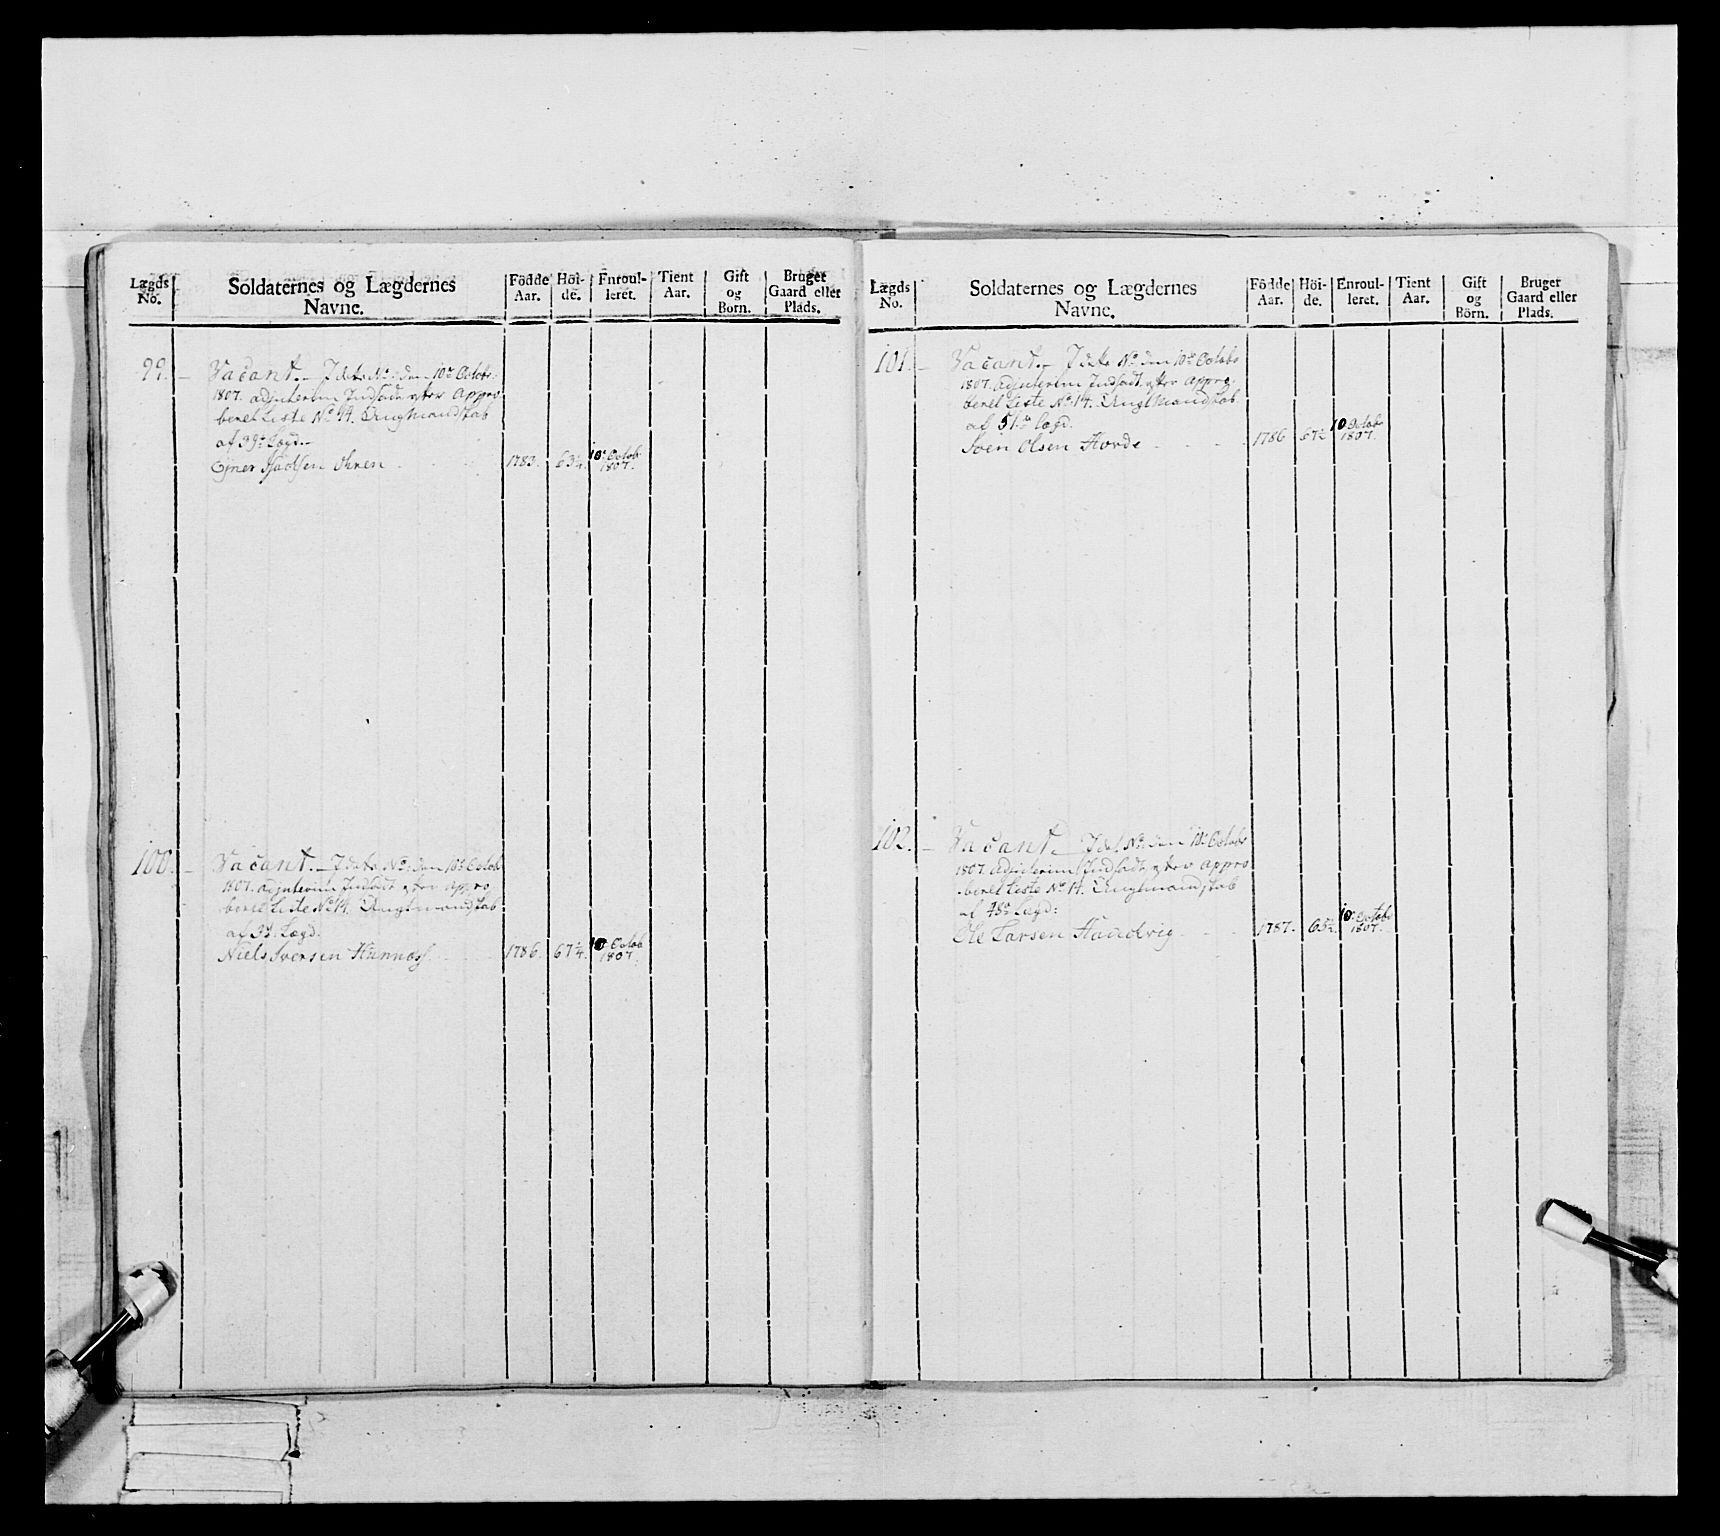 Lægds No.
Soldaternes og Lægdernes Navne.
Födde Aar.
Höi-de.
Enroul-leret.
Tient Aar.
Gift og Börn.
Bruger Gaard eller Plads.
99. Vacant. – I dito No. den 10de Octobr.
1807. adjnterim Indsadt efter Appro
beret Liste No. 14. Ungt Mandskab
af 39te Lægd.
Ejner Sjadsen 1783. 63¼. 10de Octob 1807.
100. Vacant. – I dito No. den 10de Octob
1807. adjnterim Indsadt efter Appro
beret Liste No. 14. Ungt mandskab
af Lægd.
Niels Iversen 1786. 67¼. 10de Octob 1807.
Lægds No.
Soldaternes og Lægdernes Navne.
Födde Aar.
Höi-de.
Enroul-leret.
Tient Aar.
Gift og Börn.
Bruger Gaard eller Plads.
101. Vacant. – I dito No. den 10de Octobr
1807. adjnterim Indsadt efter Appro-
beret Liste No. 14. Ungt Mandskab
af 51de Lægd.
Sven Olsen Hovde 1786 67½ 10 Octob 1807.
102. Vacant. – I dito No. den 10de Octobr
1807. adjnterim Indsadt efter Appro
beret Liste No. 14. Ungt mandskab
af 78de Lægd:
Ole Larsen Handvig 1787. 65½. 10 Octobr 1807.